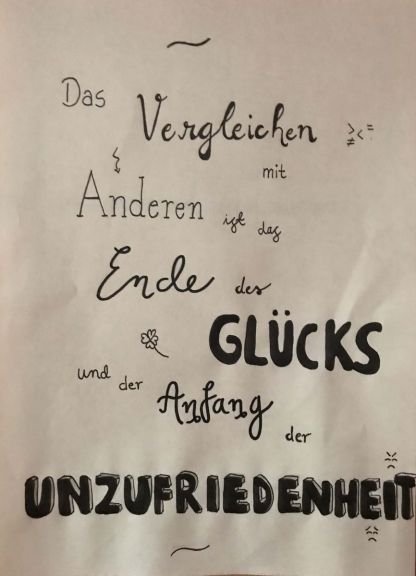 Das Vergleichen
> < = ≠
mit
Anderen ist das
Ende des
GLÜCKS
und der
Anfang
der
UNZUFRIEDENHEIT